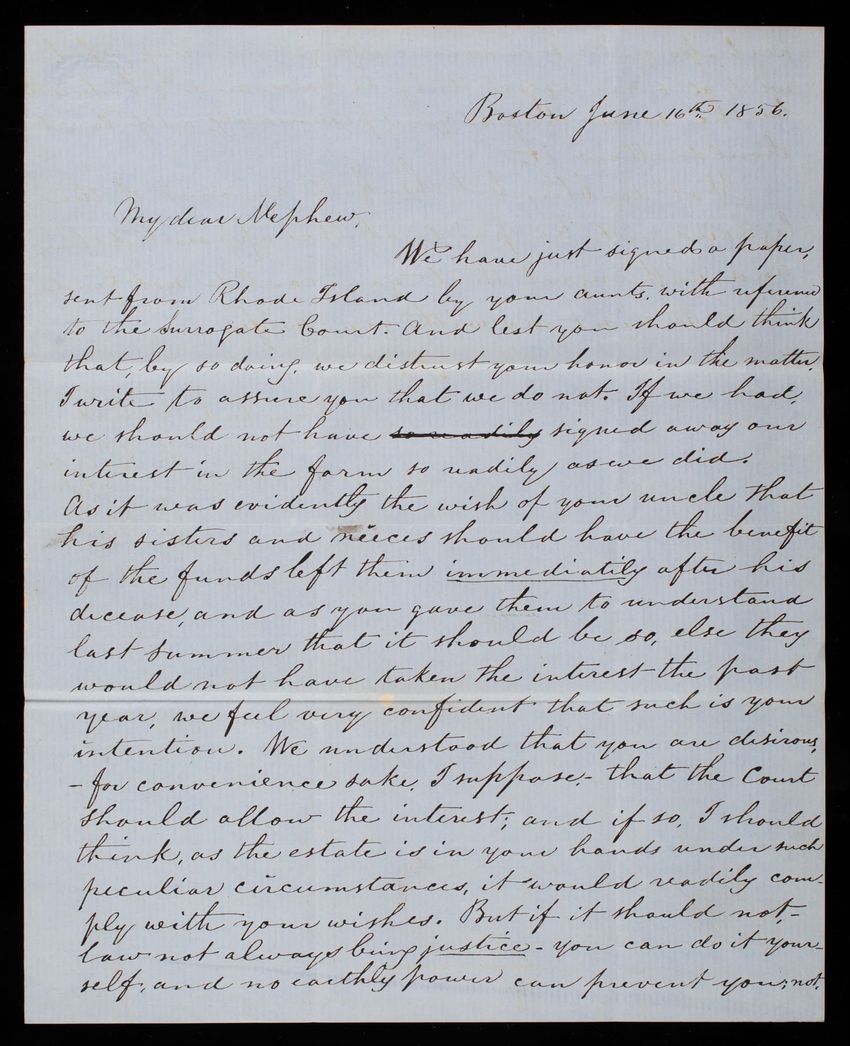 Boston June 16th. 1856.
My dear Nephew,
We have just signed a paper,
sent from Rhode Island by your aunts, with reference
to the Surrogate Court. And lest you should think
that, by so doing, we distrust your honor in the matter,
I write to assure you that we do not. If we had,
we should not have so readily signed away our
interest in the farm so readily as we did.
As it was evidently the wish of your uncle that
his sisters and neices should have the benefit
of the funds left them immediatily after his
decease, and as you gave them to understand
last summer that it should be so, else they
would not have taken the interest the past
year, we feel very confident that such is your
intention. We understood that you are desirous,
- for convenience sake, I suppose, - that the Court
should allow the interest; and if so, I should
think, as the estate is in your hands under such
peculiar circumstances, it would readily com-
ply with your wishes. But if it should not, -
law not always being justice - you can do it your-
self, and no earthly power can prevent you; not,